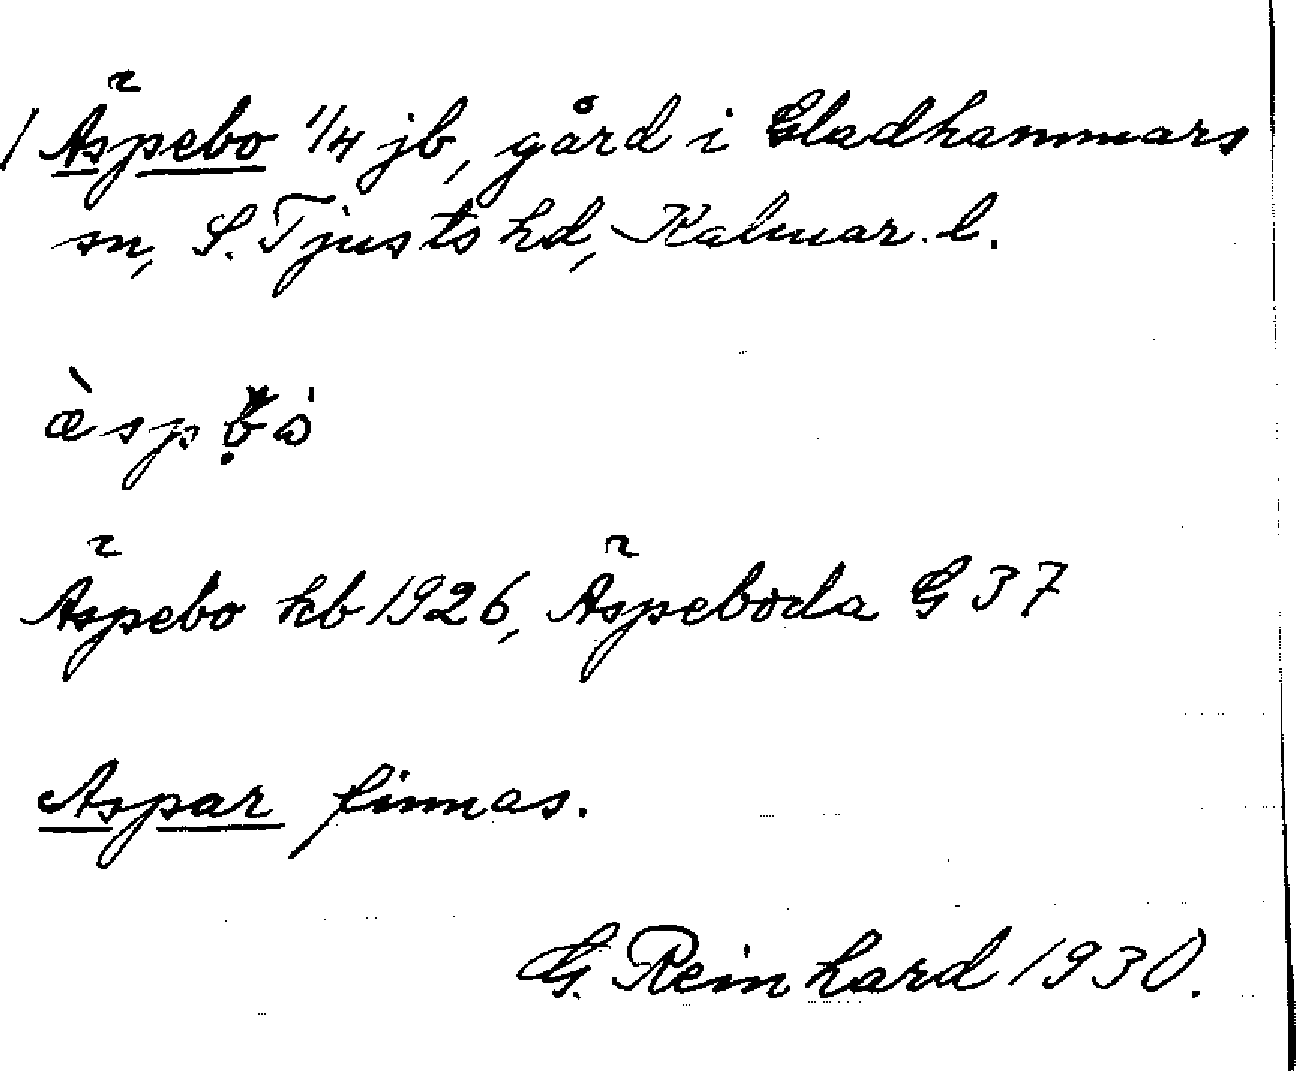 / Äspebo 1/4 jb, gård i Gladhammars
sn, S. Tjusts hd, Kalmar l.
Äspebo hb 1926, Äspeboda G 37
Aspar finnas.
G. Reinhard 1930.